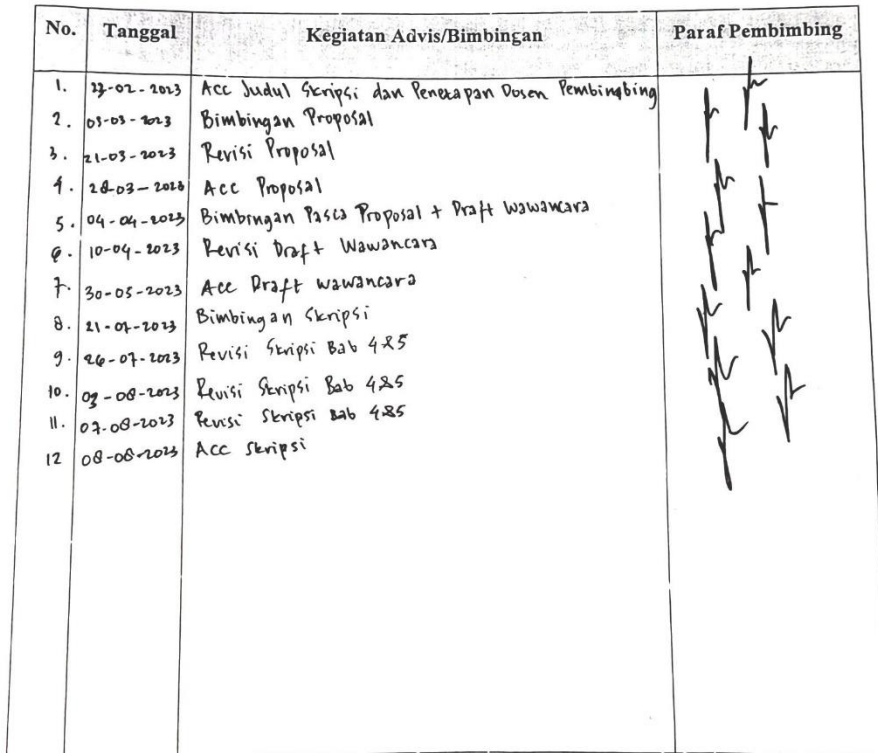 No. Tanggal Kegiatan Advis/Bimbingan Paraf Pembimbing
1. 27-02-2023 Acc Judul Skripsi dan Penetapan Dosen Pembingbing
2. 03-03-2023 Bimbingan Proposal
3. 21-03-2023 Revisi Proposal
4. 28-03-2023 Acc Proposal
5. 04-04-2023 Bimbingan Pasca Proposal + Draft Wawancara
6. 10-04-2023 Revisi Draft Wawancara
7. 30-05-2023 Acc Draft wawancara
8. 21-07-2023 Bimbingan Skripsi
9. 26-07-2023 Revisi Skripsi Bab 4&5
10. 03-08-2023 Revisi Skripsi Bab 4&5
11. 07-08-2023 Revisi Skripsi Bab 4&5
12 08-08-2023 Acc Skripsi